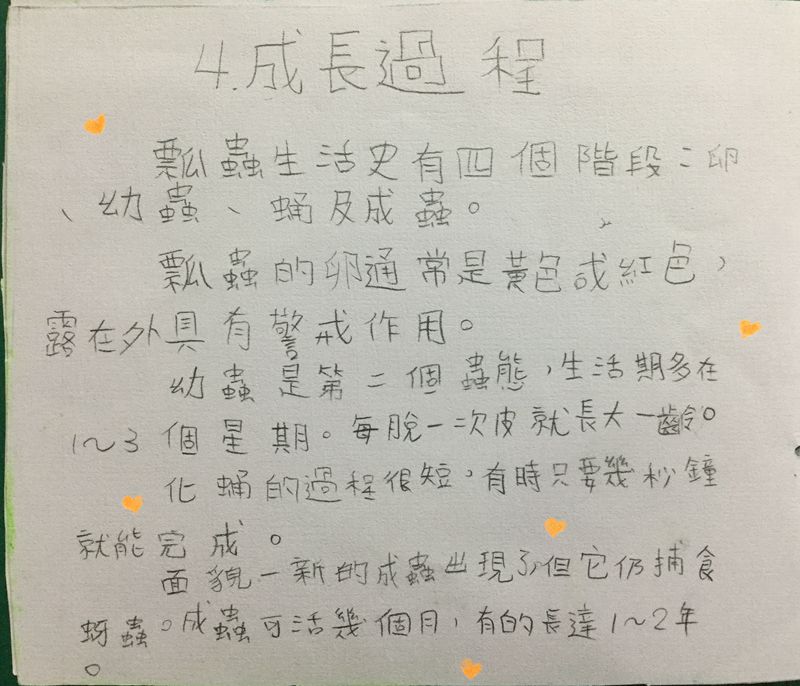 4.成長過程
瓢蟲生活史有四個階段：卵
、幼蟲、蛹及成蟲。
瓢蟲的卵通常是黃色或紅色，
露在外具有警戒作用。
幼蟲是第二個蟲態，生活期多在
1～3個星期。每脫一次皮就長大一齡。
化蛹的過程很短，有時只要幾秒鐘
就能完成。
面貌一新的成蟲出現了但它仍捕食
蚜蟲。成蟲可活幾個月，有的長達1～2年
。